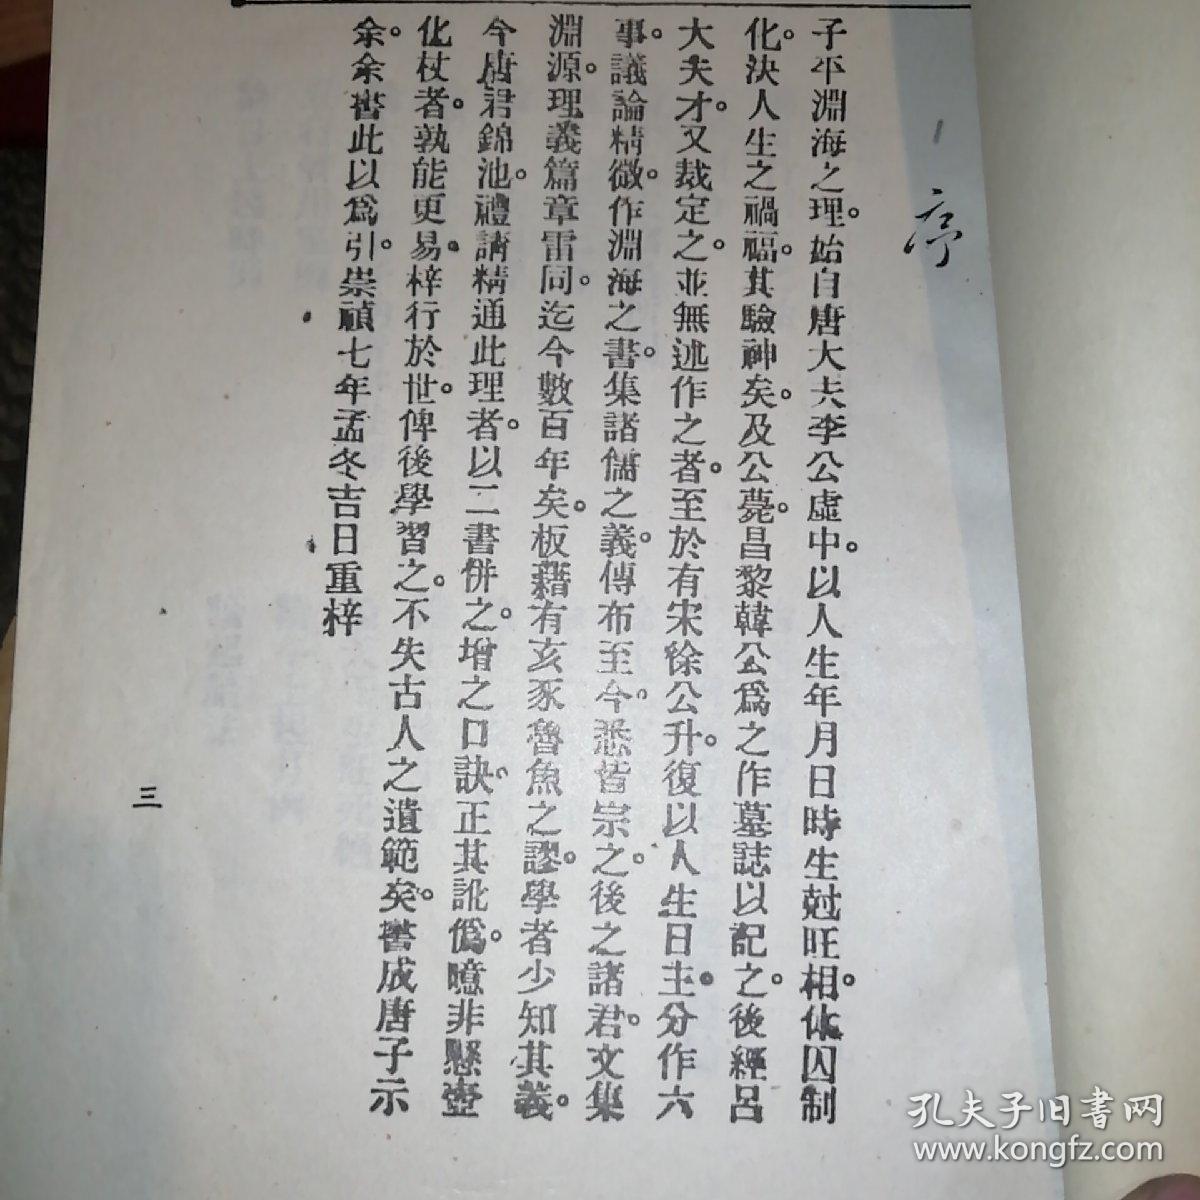 序
子平淵海之理。始自唐大夫李公虛中。以人生年月日時生尅旺相。休囚制
化。決人生之禍福。其驗神矣。及公薨。昌黎韓公爲之作墓誌以記之。後經呂
大夫才。又裁定之。並無述作之者。至於有宋徐公升。復以人生日主。分作六
事。議論精微。作淵海之書。集諸儒之義。傳布至今。悉皆宗之。後之諸君。文集
淵源。理義篇章雷同。迄今數百年矣。板藉有亥豕魯魚之謬。學者少知其義。
今唐君錦池。禮請精通此理者。以二書併之。增之口訣。正其訛僞。噫非懸壺
化杖者。孰能更易。梓行於世。俾後學習之。不失古人之遺範矣。書成唐子示
余。余書此以爲引。崇禎七年孟冬吉日重梓
三
孔夫子旧書网
www.kongfz.com